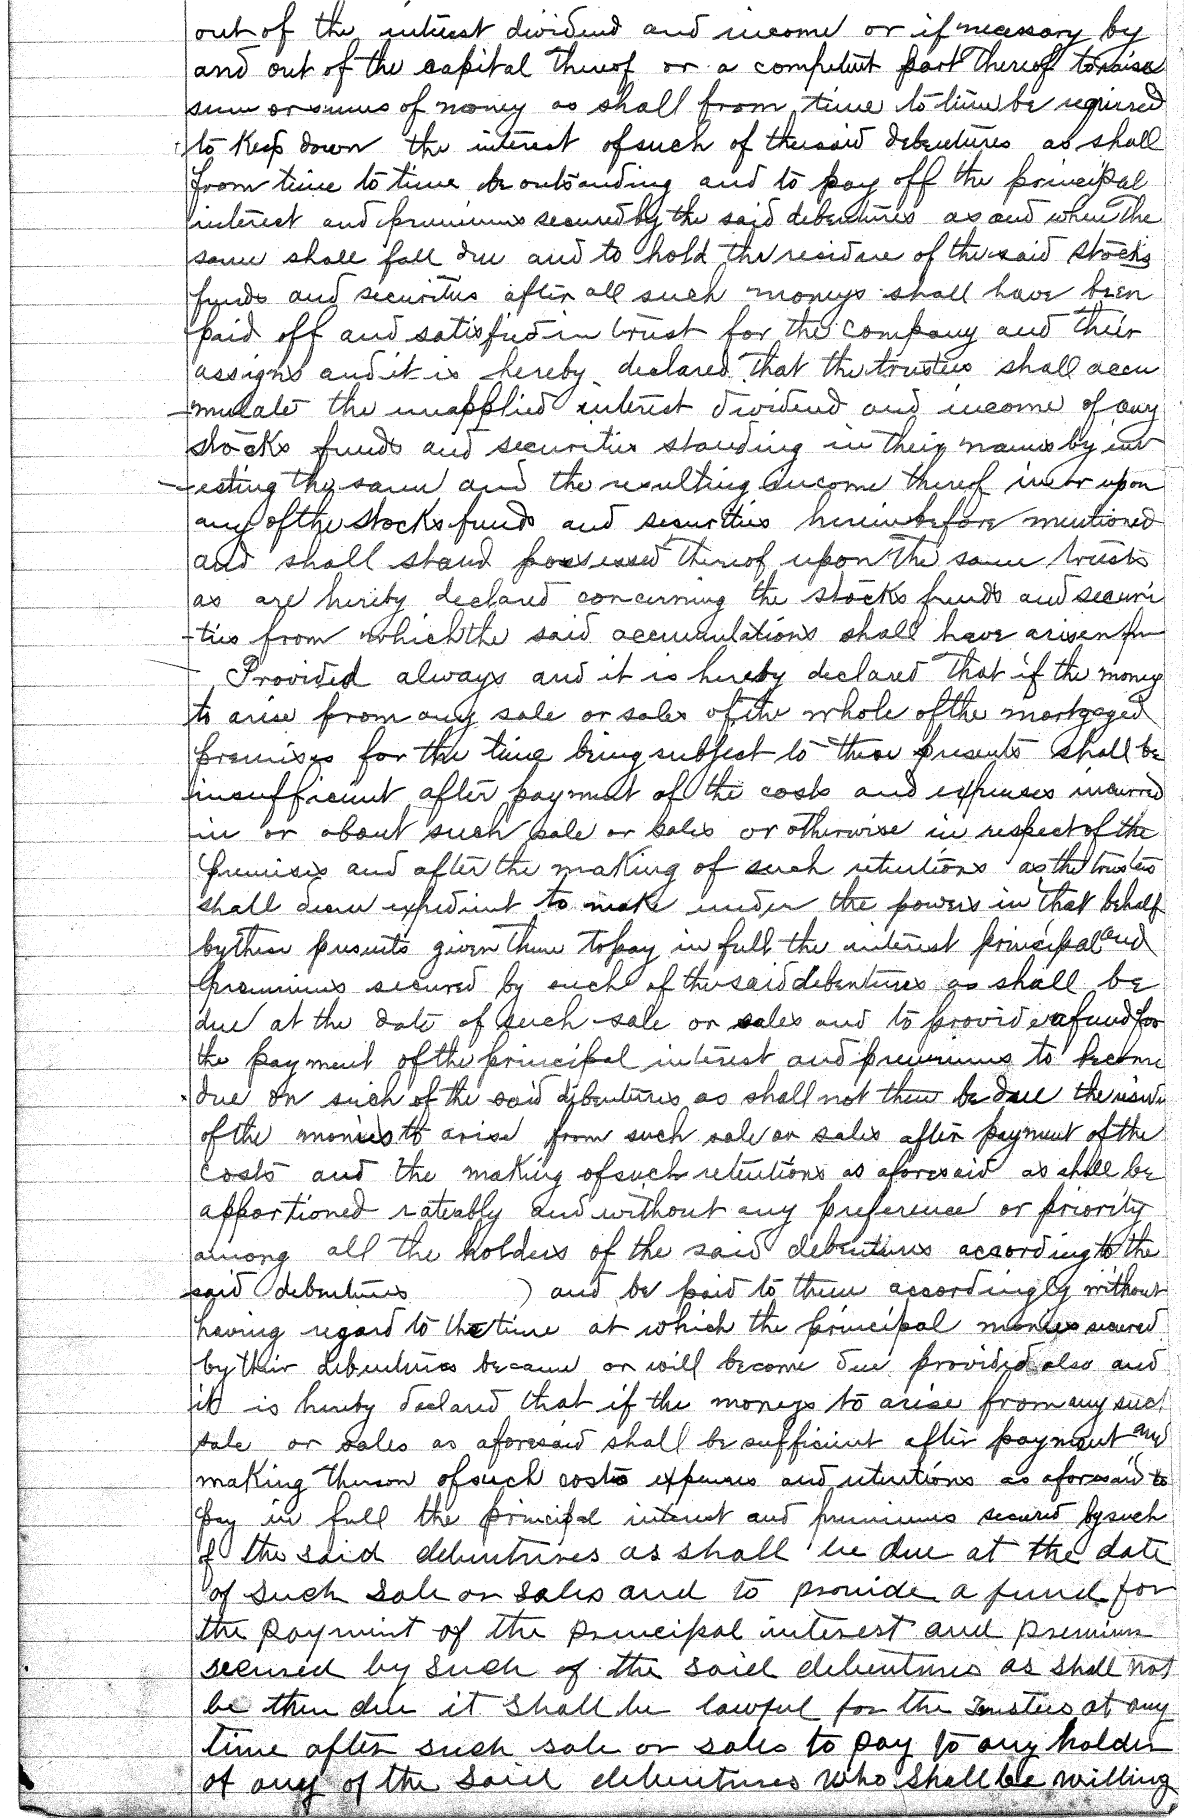 out of the interest dividend and income or if necessary by
and out of the capital thereof or a competent part thereof to raise
sum or sums of money as shall from time to time be required
to keep down the interest of such of the said debentures as shall
from time to time be outstanding and to pay off the principal
interest and premiums secured by the said debentures as and when the
same shall fall due and to hold the residue of the said stocks
funds and securities after all such moneys shall have been
paid off and satisfied in trust for the Company and their
assigns and it is hereby declared that the trustees shall accu
mulate the unapplied interest dividend and income of any
stocks funds and securities standing in their names by inv
esting the same and the resulting income thereof in or upon
any of the stocks funds and securities hereinbefore mentioned
and shall stand possessed thereof upon the same trusts
as are hereby declared concerning the stocks funds and securi
ties from which the said accumulations shall have arisen
Provided always and it is hereby declared that if the money
to arise from any sale or sales of the whole of the mortgaged
premises for the time being subject to these presents shall be
insufficient after payment of the costs and expenses incurred
in or about such sale or sales or otherwise in respect of the
premises and after the making of such retentions as the trustees
shall deem expedient to make under the powers in that behalf
by these presents given them to pay in full the interest principal and
premiums secured by such of the said debentures as shall be
due at the date of such sale or sales and to provide a fund for
the payment of the principal interest and premiums to become
due on such of the said debentures as shall not then be due the residue
of the monies to arise from such sale or sales after payment of the
costs and the making of such retentions as aforesaid as shall be
apportioned rateably and without any preference or priority
among all the holders of the said debentures according to the
said debentures ) and be paid to them accordingly without
having regard to the time at which the principal monies secured
by their debentures became or will become due provided also and
it is hereby declared that if the moneys to arise from any such
sale or sales as aforesaid shall be sufficient after payment and
making thereon of such costs expenses and retentions as aforesaid to
pay in full the principal interest and premiums secured by such
of the said debentures as shall be due at the date
of such sale or sales and to provide a fund for
the payment of the principal interest and premium
secured by such of the said debentures as shall not
be then due it shall be lawful for the Trustees at any
time after such sale or sales to pay to any holder
of any of the said debentures who shall be willing